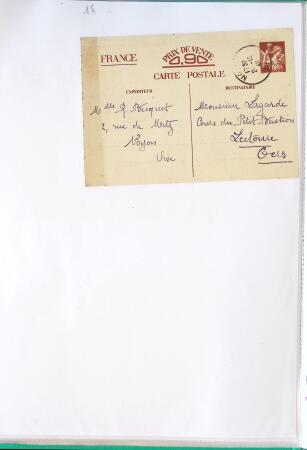 15
FRANCE
PRIX DE VENTE
0,90
CARTE POSTALE
EXPÉDITEUR
Mlle G. Pacquet
2, rue de Metz
Noyon
Oise
DESTINATAIRE
Monsieur Lagarde
Cours du Petit Bastion
Lectoure
Gers